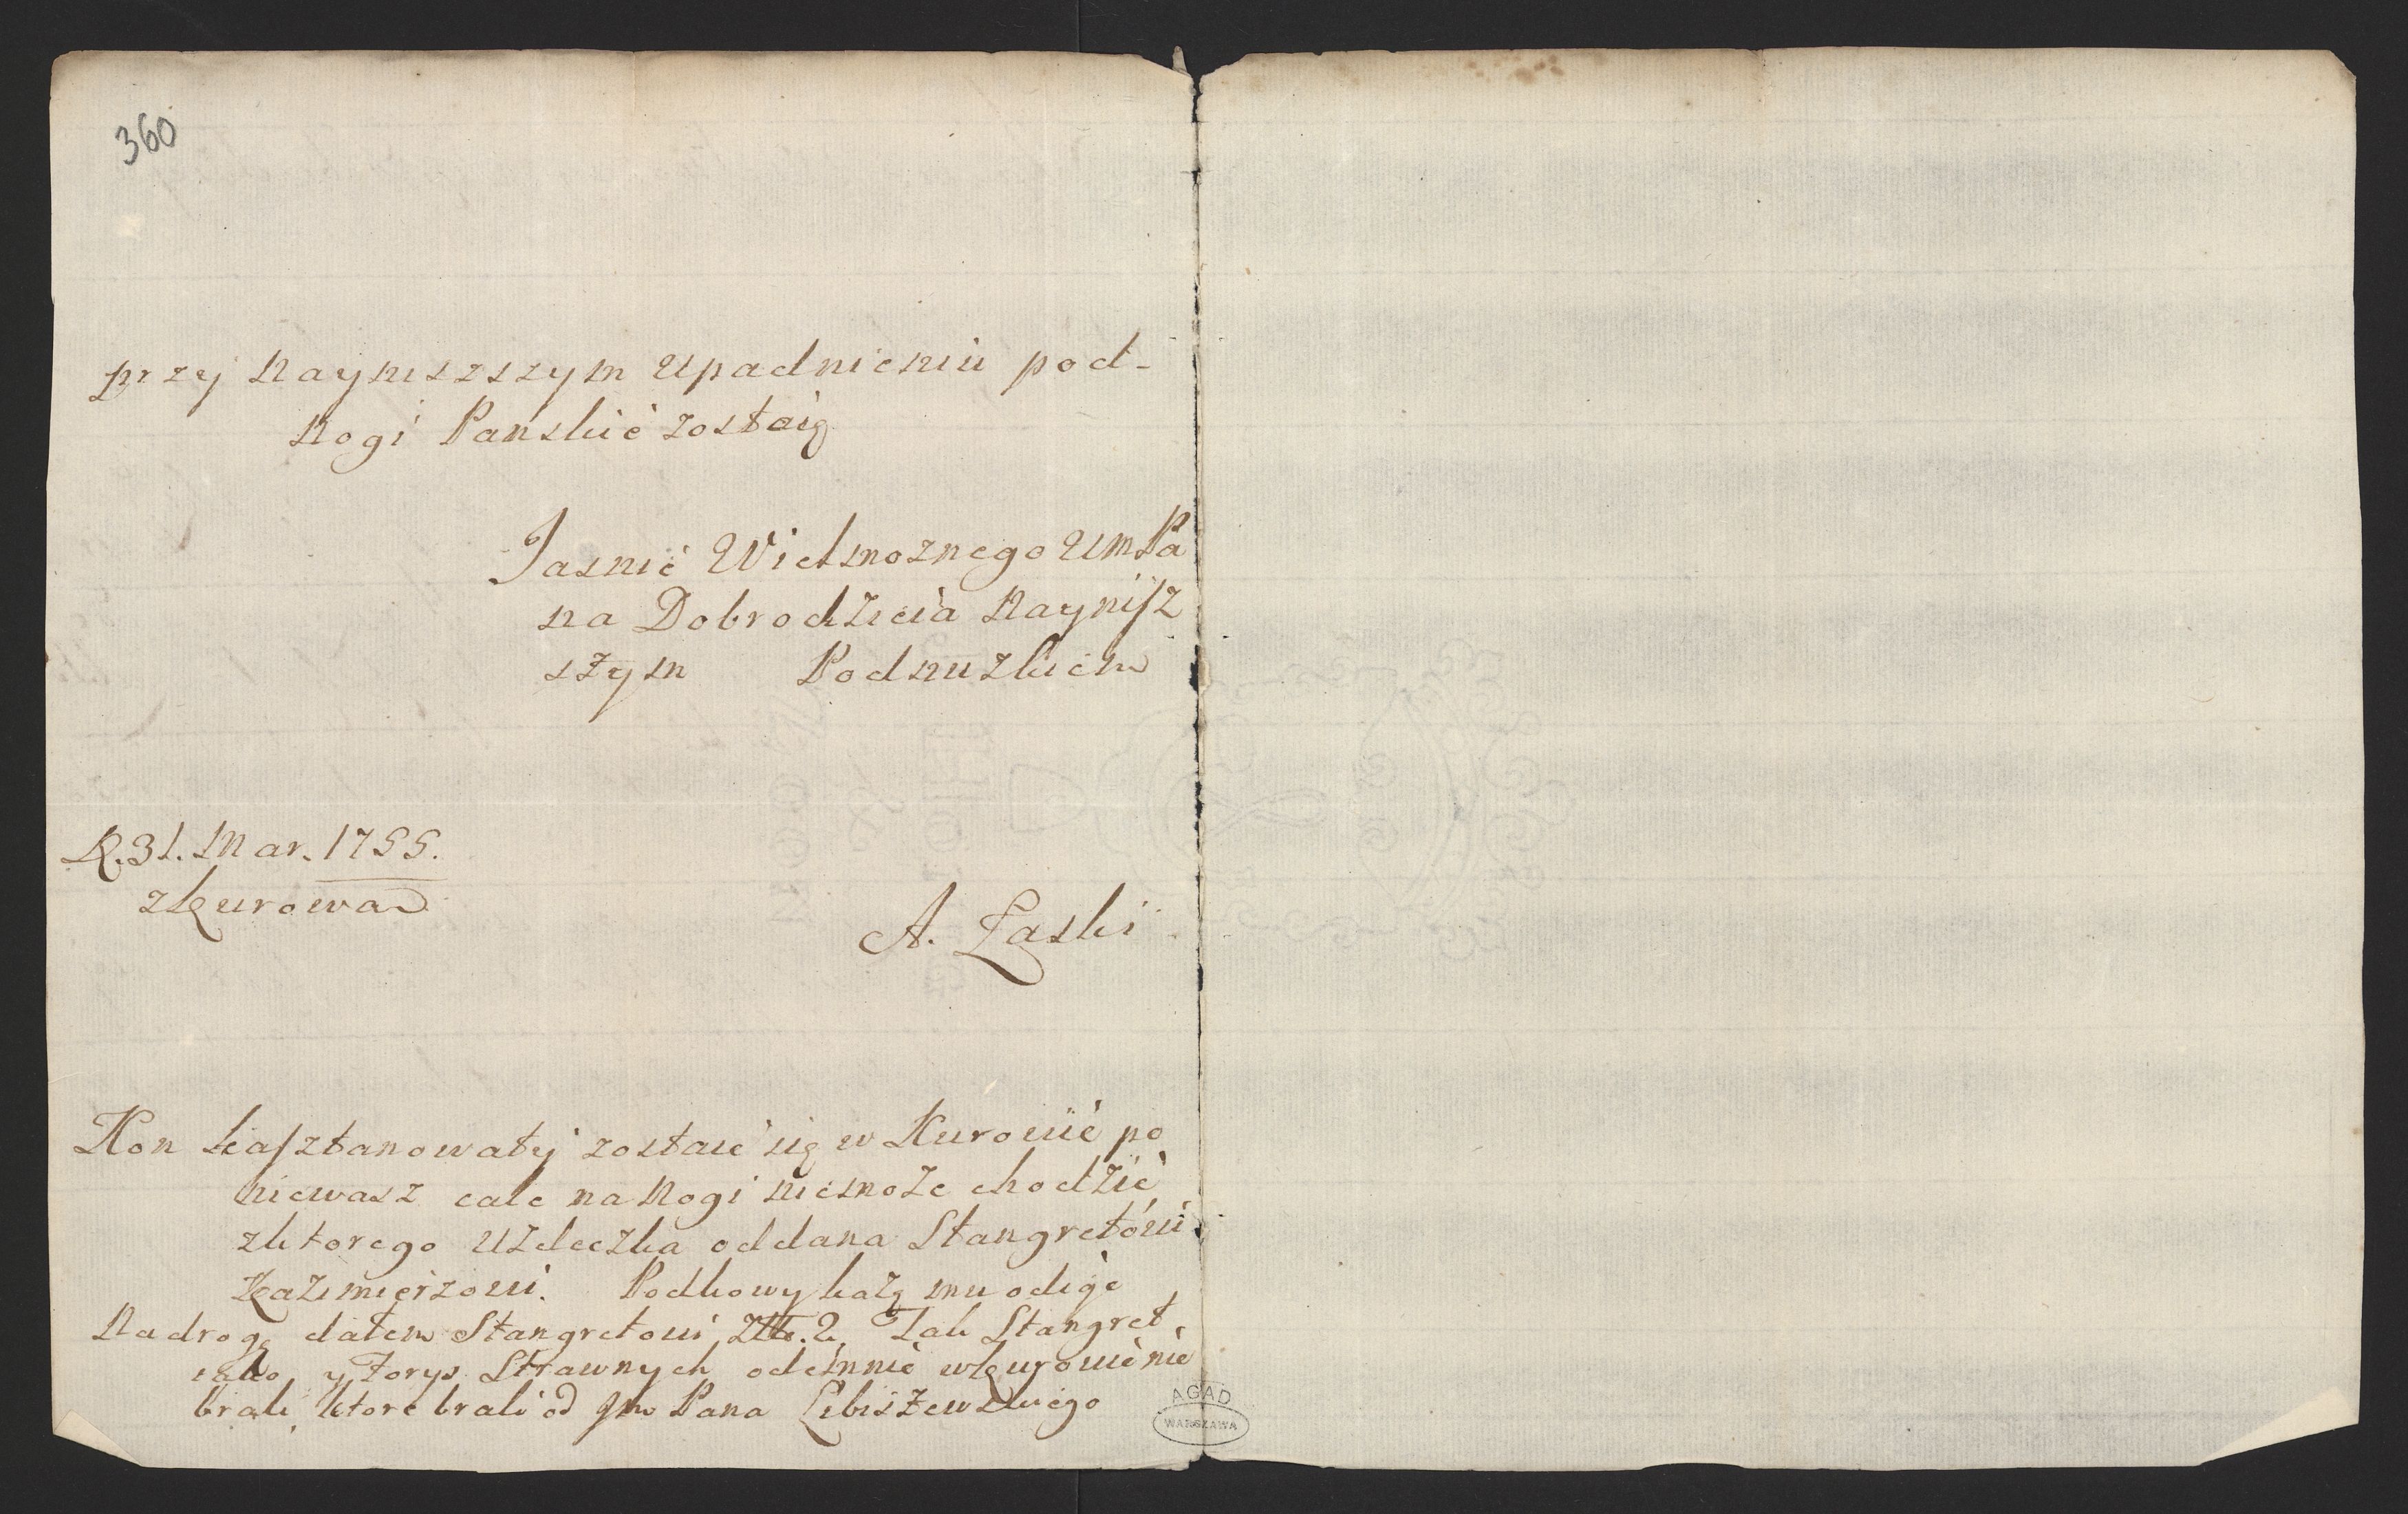 360
przy Nayniszszym Upadnieniu pod-
Nogi Panskie zostaię
Jasnie Wielmoznego UmPa
na Dobrodzieia Naynisz
szym Podnuzkiem
R. 31. Mar. 1755.
z Kurowa
A. Łaski
Kon kasztanowaty zostaie się w Kurowie po
niewasz cale na Nogi niemoze chodzić
z ktorego Uzdeczka oddana Stangretowi
Kazimierzowi. Podkowy każę mu odiąć
Na drogę dałem Stangretowi 2. Tak Stangret
iako y Forys Strawnych odemnie w Kurowie nie
brali, ktore brali od Pana Libiszewskiego
AGAD
WARSZAWA